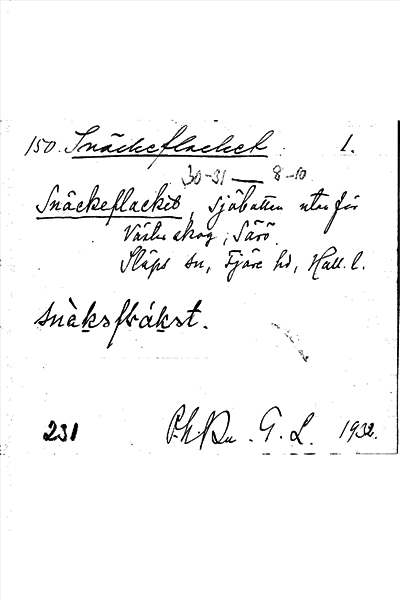 150. Snäckeflacket 1.
30-31 — 8-10
Snäckeflacket, sjöbotten utanför
Västerskog, Särö
Släps sn, Fjäre hd, Hall. l.
231 G. L. 1932.